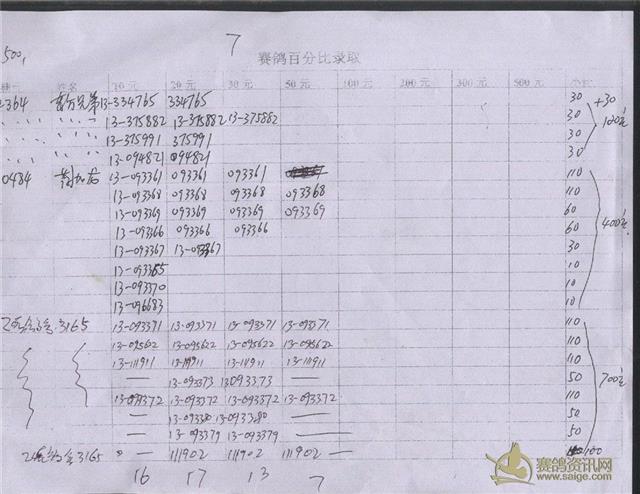 7
500,
赛鸽百分比录取
姓名 10元 20元 30元 50元 100元 200元 300元 500元
2364 兄弟 13-334765 334765 30 +30
13-375882 13-375882 13-375882 30 100
13-375991 375991 30
13-094821 094821 30
0434 13-093361 093361 093361 110
13-093368 093368 093368 093368 110
13-09369 093369 093369 093369 60
13-093366 093366 093366 60 400
13-093367 13-093367 30
13-093365 10
13-093370 10
13-096683 10
3165 13-093371 13-093371 13-093371 13-093371 110
13-095622 13-095622 13-095622 13-095622 110
13-111911 13-111911 13-111911 13-111911 110
— 13-093373 13093373 — 50 700
13-093372 13-093372 13-093372 13-093372 110
— 13-093380 13-093380 — 50
— 13-093379 13-093379 — 50
3165 — 111902 111902 111902 — 100
16 17 13 7
赛鸽资讯网
www.saige.com